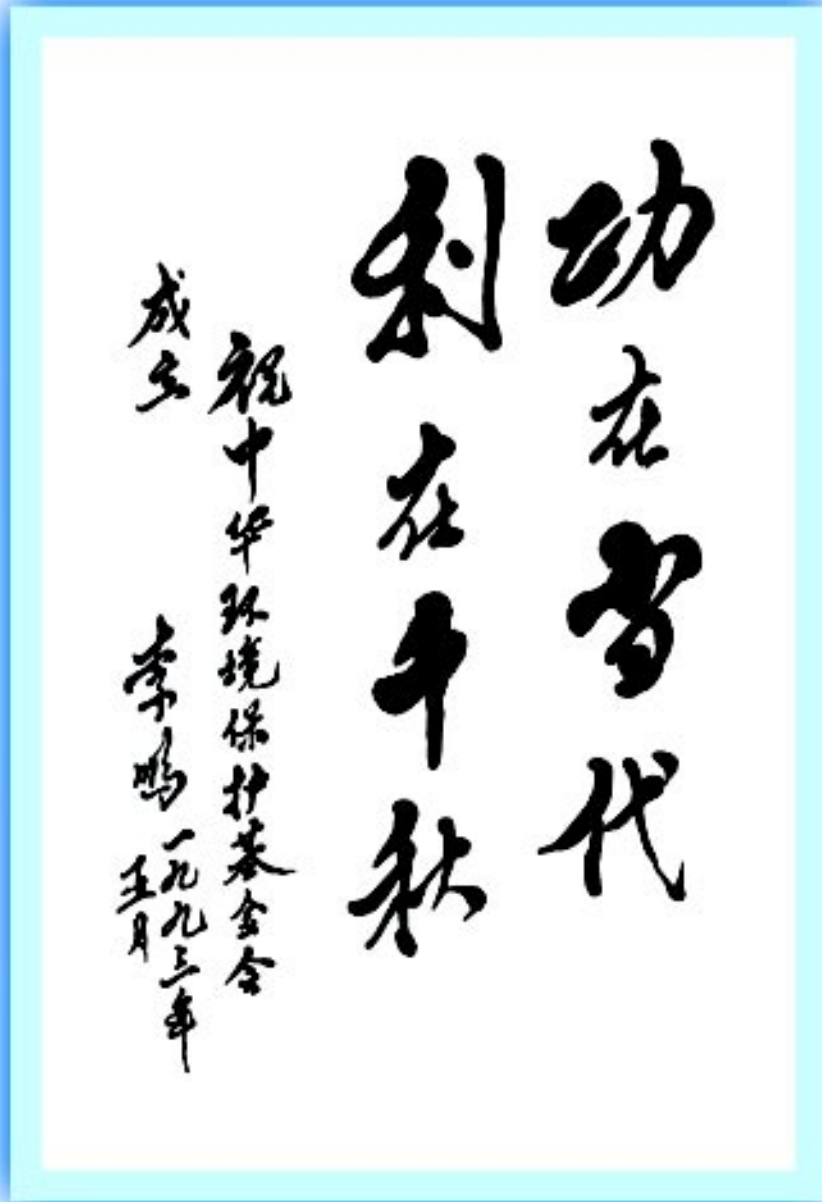 功在当代
利在千秋
祝中华环境保护基金会
成立
李鹏
一九九三年
五月